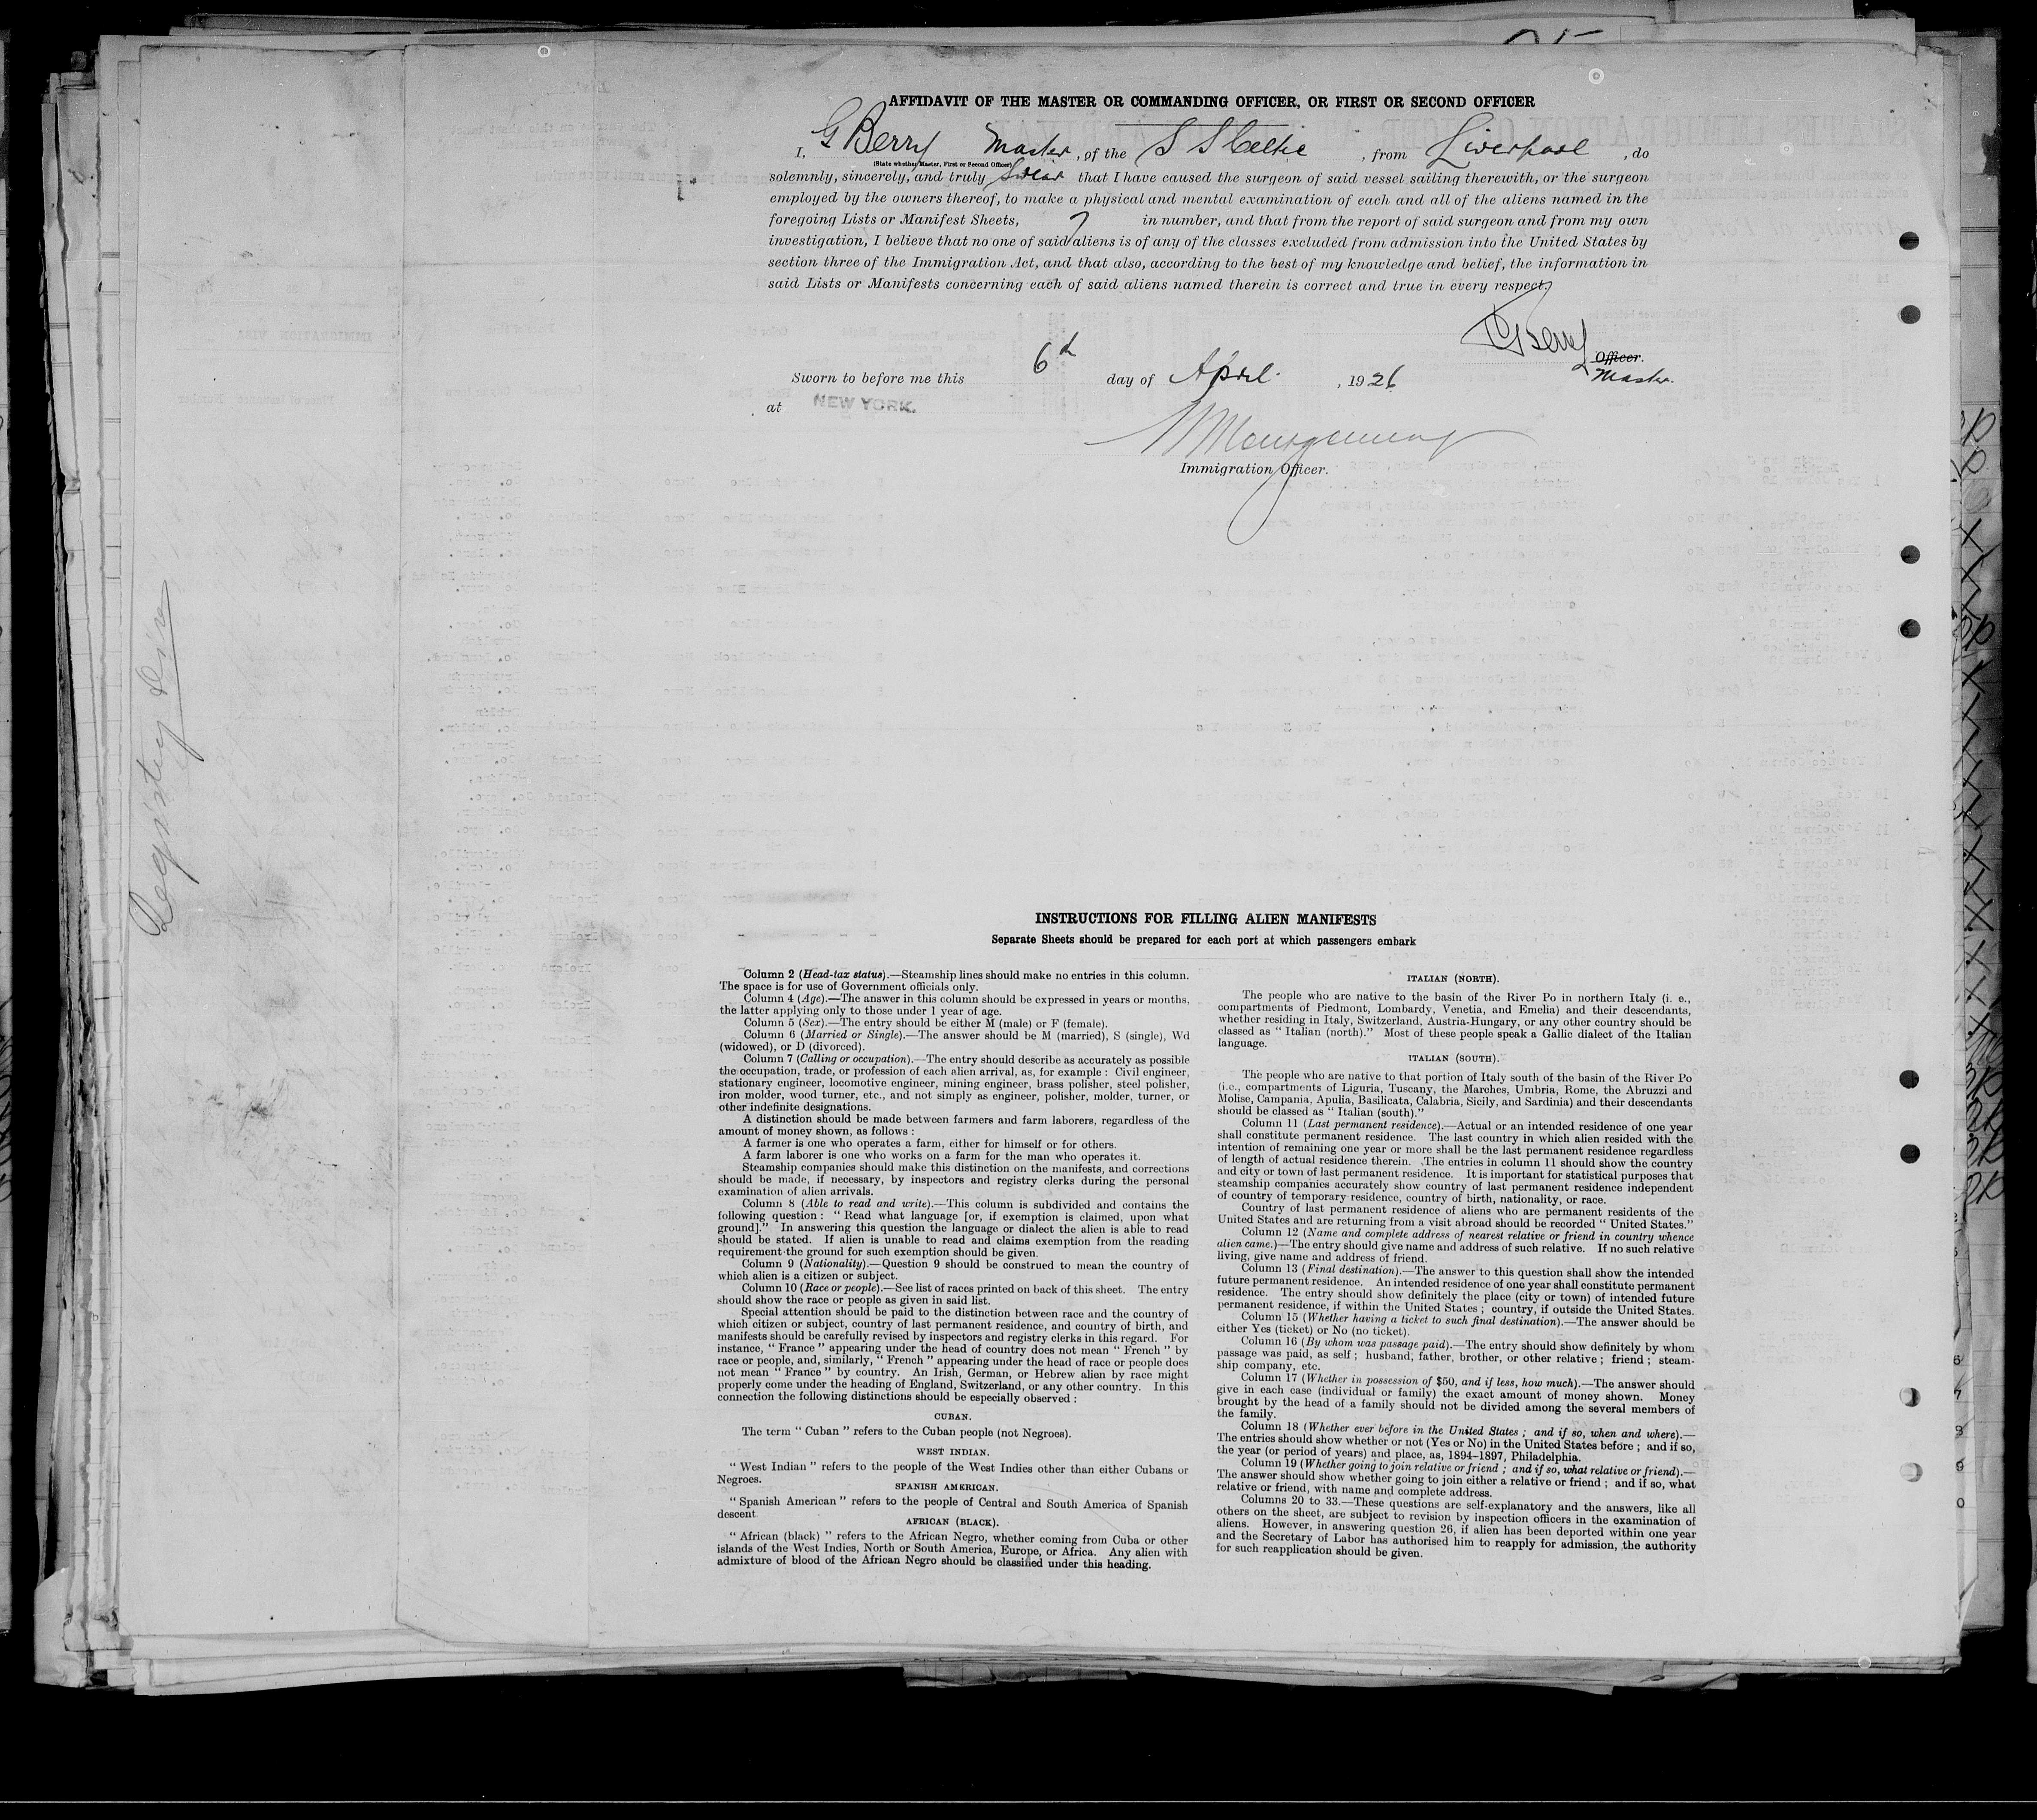 AFFIDAVIT OF THE MASTER OR COMMANDING OFFICER, OR FIRST OR SECOND OFFICER
I, G Berry Master, of the S S Celtic, from Liverpool, do
(State whether Master, First or Second Officer)
solemnly, sincerely, and truly swear that I have caused the surgeon of said vessel sailing therewith, or the surgeon
employed by the owners thereof, to make a physical and mental examination of each and all of the aliens named in the
foregoing Lists or Manifest Sheets, 7 in number, and that from the report of said surgeon and from my own
investigation, I believe that no one of said aliens is of any of the classes excluded from admission into the United States by
section three of the Immigration Act, and that also, according to the best of my knowledge and belief, the information in
said Lists or Manifests concerning each of said aliens named therein is correct and true in every respect.
G Berry
Officer.
Master.
Sworn to before me this 6th day of April, 1926
at NEW YORK.
Montgomery
Immigration Officer.
Registry Div
INSTRUCTIONS FOR FILLING ALIEN MANIFESTS
Separate Sheets should be prepared for each port at which passengers embark
Column 2 (Head-tax status).—Steamship lines should make no entries in this column.
The space is for use of Government officials only.
Column 4 (Age).—The answer in this column should be expressed in years or months,
the latter applying only to those under 1 year of age.
Column 5 (Sex).—The entry should be either M (male) or F (female).
Column 6 (Married or Single).—The answer should be M (married), S (single), Wd
(widowed), or D (divorced).
Column 7 (Calling or occupation).—The entry should describe as accurately as possible
the occupation, trade, or profession of each alien arrival, as, for example : Civil engineer,
stationary engineer, locomotive engineer, mining engineer, brass polisher, steel polisher,
iron molder, wood turner, etc., and not simply as engineer, polisher, molder, turner, or
other indefinite designations.
A distinction should be made between farmers and farm laborers, regardless of the
amount of money shown, as follows :
A farmer is one who operates a farm, either for himself or for others.
A farm laborer is one who works on a farm for the man who operates it.
Steamship companies should make this distinction on the manifests, and corrections
should be made, if necessary, by inspectors and registry clerks during the personal
examination of alien arrivals.
Column 8 (Able to read and write).—This column is subdivided and contains the
following question : " Read what language [or, if exemption is claimed, upon what
ground]." In answering this question the language or dialect the alien is able to read
should be stated. If alien is unable to read and claims exemption from the reading
requirement the ground for such exemption should be given.
Column 9 (Nationality).—Question 9 should be construed to mean the country of
which alien is a citizen or subject.
Column 10 (Race or people).—See list of races printed on back of this sheet. The entry
should show the race or people as given in said list.
Special attention should be paid to the distinction between race and the country of
which citizen or subject, country of last permanent residence, and country of birth, and
manifests should be carefully revised by inspectors and registry clerks in this regard. For
instance, " France " appearing under the head of country does not mean " French " by
race or people, and, similarly, " French " appearing under the head of race or people does
not mean " France " by country. An Irish, German, or Hebrew alien by race might
properly come under the heading of England, Switzerland, or any other country. In this
connection the following distinctions should be especially observed :
CUBAN.
The term " Cuban " refers to the Cuban people (not Negroes).
WEST INDIAN.
" West Indian " refers to the people of the West Indies other than either Cubans or
Negroes.
SPANISH AMERICAN.
" Spanish American " refers to the people of Central and South America of Spanish
descent
AFRICAN (BLACK).
" African (black) " refers to the African Negro, whether coming from Cuba or other
islands of the West Indies, North or South America, Europe, or Africa. Any alien with
admixture of blood of the African Negro should be classified under this heading.
ITALIAN (NORTH).
The people who are native to the basin of the River Po in northern Italy (i. e.,
compartments of Piedmont, Lombardy, Venetia, and Emelia) and their descendants,
whether residing in Italy, Switzerland, Austria-Hungary, or any other country should be
classed as " Italian (north)." Most of these people speak a Gallic dialect of the Italian
language.
ITALIAN (SOUTH).
The people who are native to that portion of Italy south of the basin of the River Po
(i.e., compartments of Liguria, Tuscany, the Marches, Umbria, Rome, the Abruzzi and
Molise, Campania, Apulia, Basilicata, Calabria, Sicily, and Sardinia) and their descendants
should be classed as " Italian (south)."
Column 11 (Last permanent residence).—Actual or an intended residence of one year
shall constitute permanent residence. The last country in which alien resided with the
intention of remaining one year or more shall be the last permanent residence regardless
of length of actual residence therein. The entries in column 11 should show the country
and city or town of last permanent residence. It is important for statistical purposes that
steamship companies accurately show country of last permanent residence independent
of country of temporary residence, country of birth, nationality, or race.
Country of last permanent residence of aliens who are permanent residents of the
United States and are returning from a visit abroad should be recorded " United States."
Column 12 (Name and complete address of nearest relative or friend in country whence
alien came.)—The entry should give name and address of such relative. If no such relative
living, give name and address of friend.
Column 13 (Final destination).—The answer to this question shall show the intended
future permanent residence. An intended residence of one year shall constitute permanent
residence. The entry should show definitely the place (city or town) of intended future
permanent residence, if within the United States ; country, if outside the United States.
Column 15 (Whether having a ticket to such final destination).—The answer should be
either Yes (ticket) or No (no ticket).
Column 16 (By whom was passage paid).—The entry should show definitely by whom
passage was paid, as self ; husband, father, brother, or other relative ; friend ; steam-
ship company, etc.
Column 17 (Whether in possession of $50, and if less, how much).—The answer should
give in each case (individual or family) the exact amount of money shown. Money
brought by the head of a family should not be divided among the several members of
the family.
Column 18 (Whether ever before in the United States ; and if so, when and where).—
The entries should show whether or not (Yes or No) in the United States before ; and if so,
the year (or period of years) and place, as, 1894-1897, Philadelphia.
Column 19 (Whether going to join relative or friend ; and if so, what relative or friend).—
The answer should show whether going to join either a relative or friend ; and if so, what
relative or friend, with name and complete address.
Columns 20 to 33.—These questions are self-explanatory and the answers, like all
others on the sheet, are subject to revision by inspection officers in the examination of
aliens. However, in answering question 26, if alien has been deported within one year
and the Secretary of Labor has authorised him to reapply for admission, the authority
for such reapplication should be given.